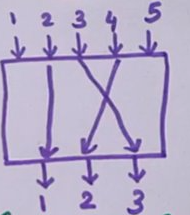 1 2 3 4 5
1 2 3